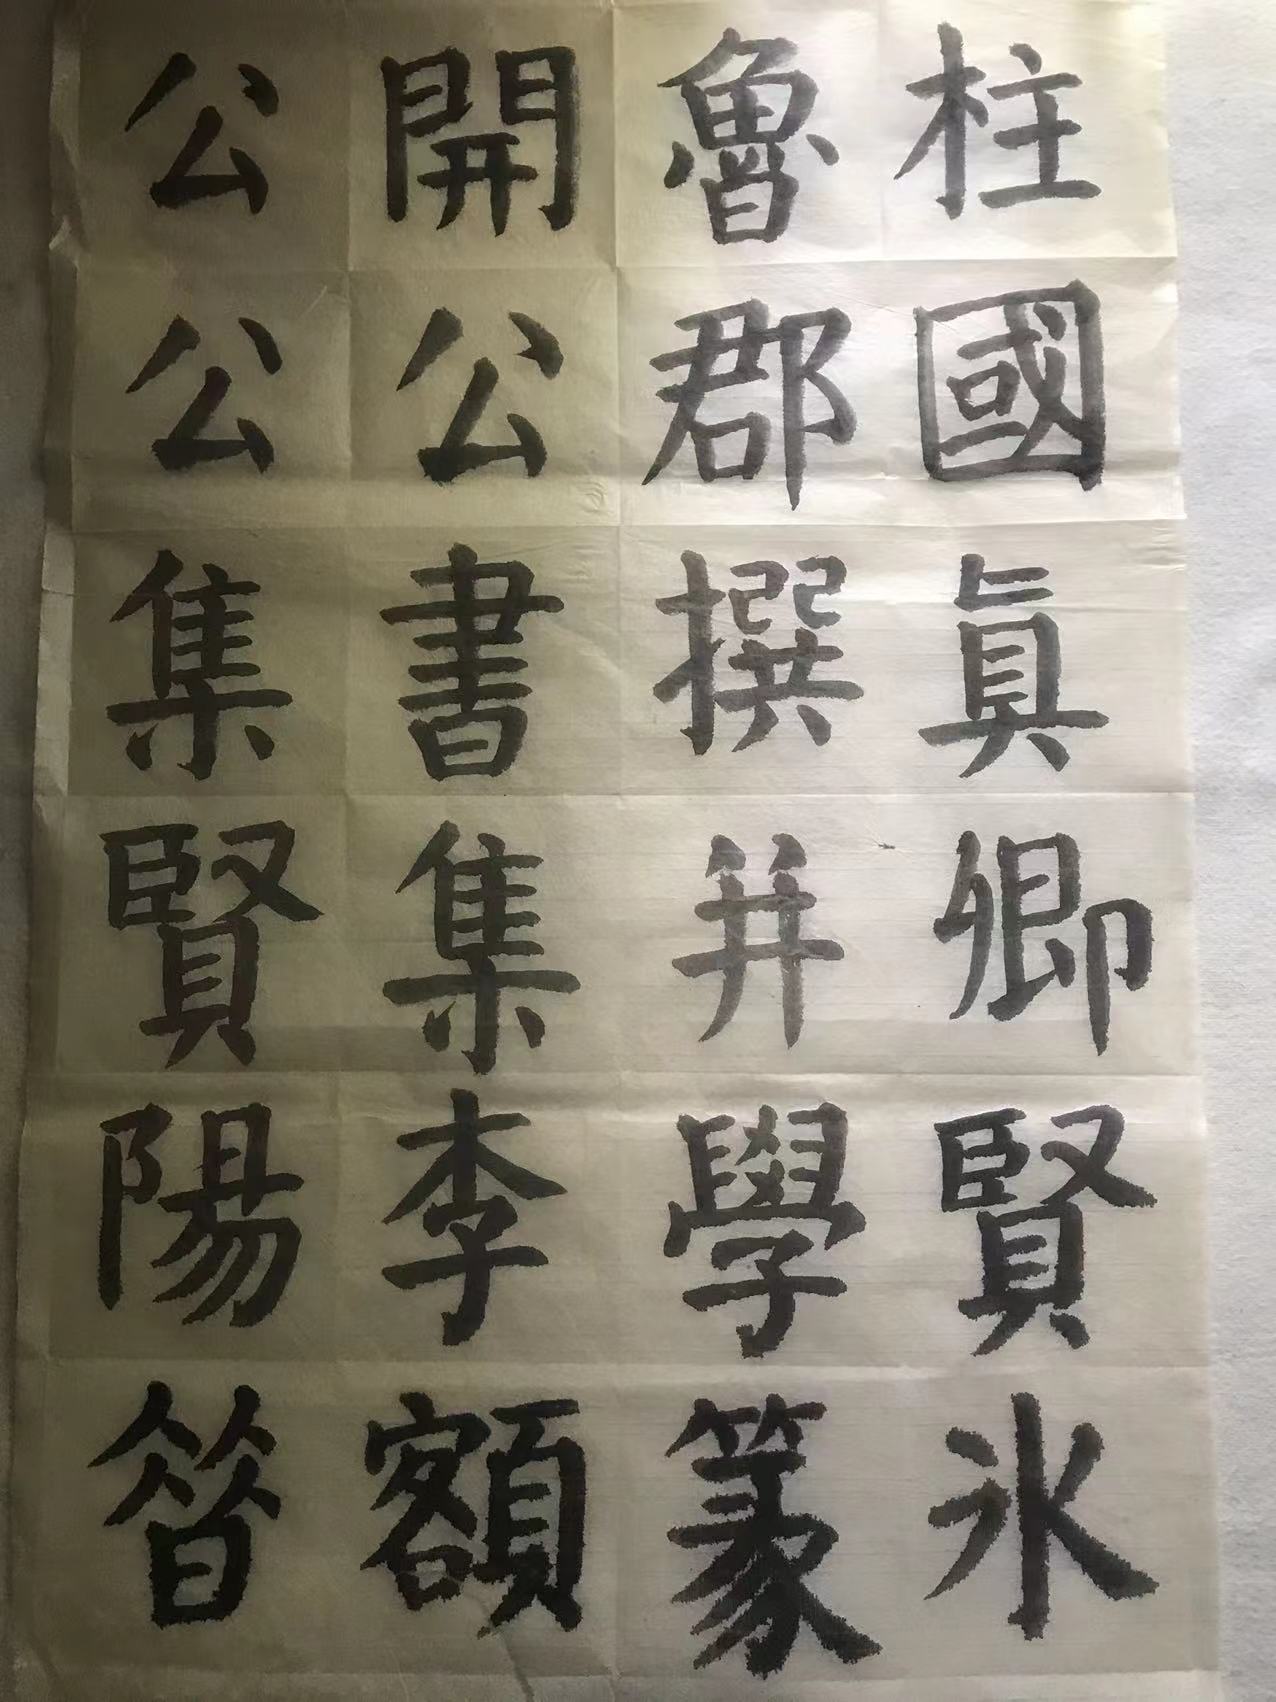 柱國眞卿賢氷
魯郡撰并學篆
開公書集李額
公公集賢陽㫺